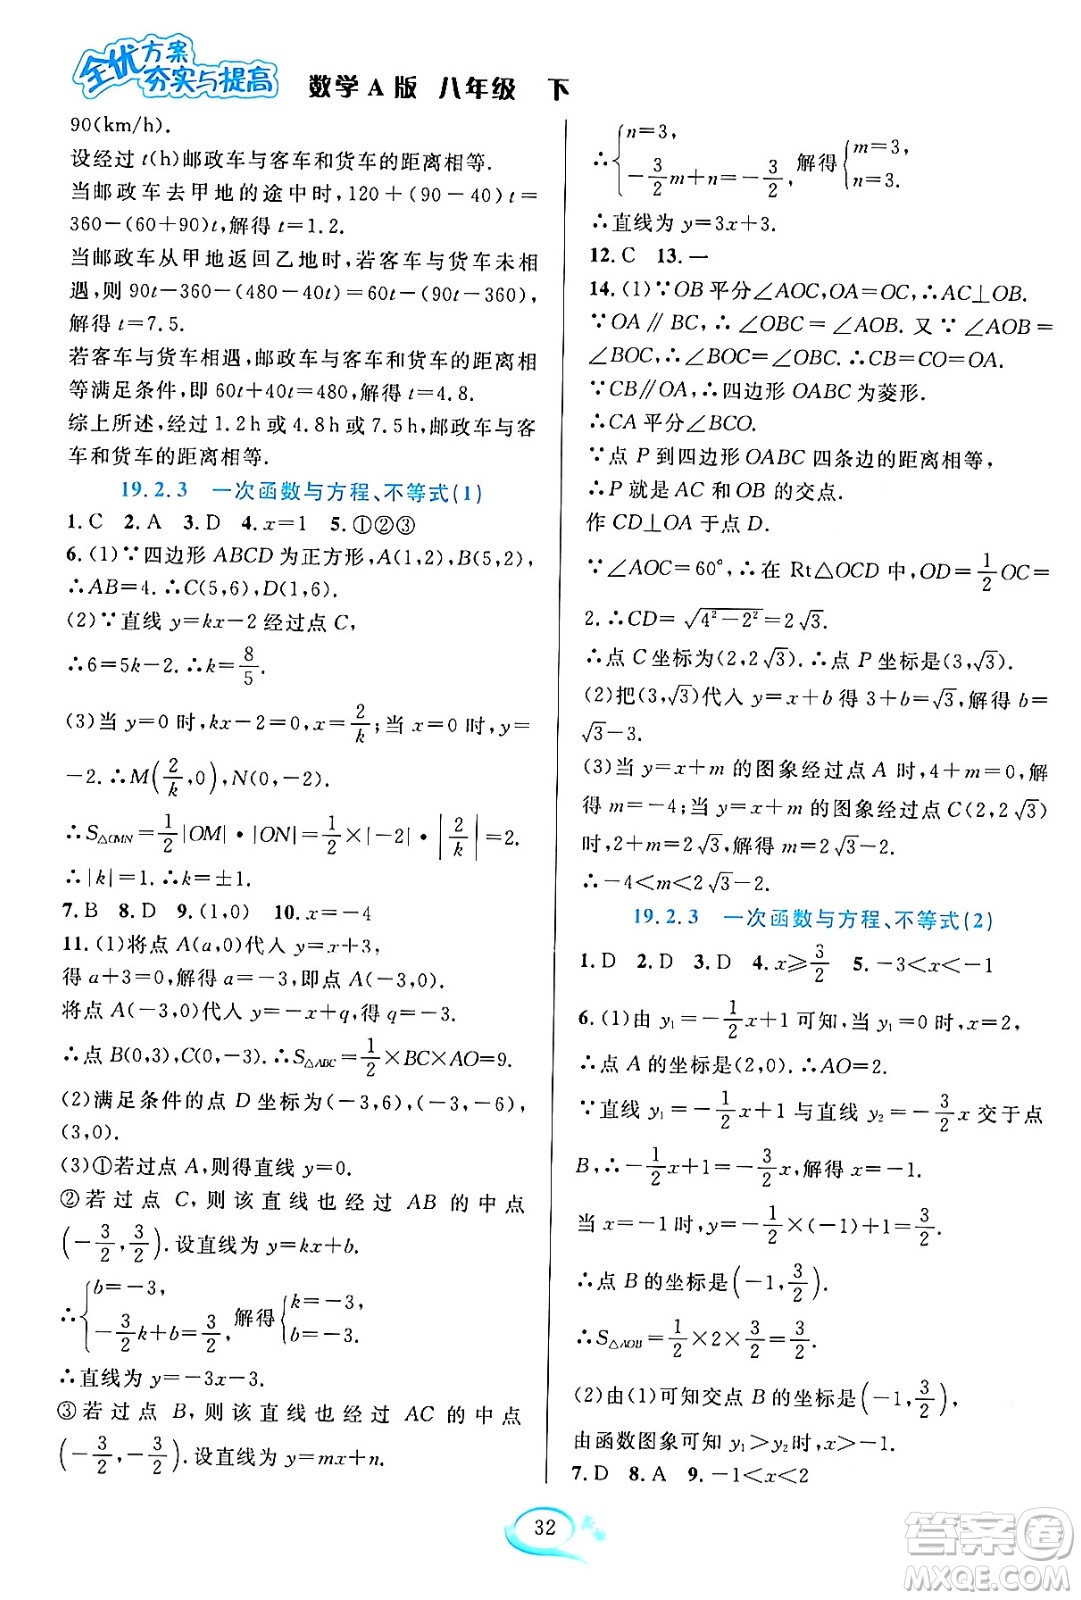 全优方案
夯实与提高
数学A版 八年级 下
90(km/h).
设经过 t(h)邮政车与客车和货车的距离相等.
当邮政车去甲地的途中时,120+(90-40)t=
360-(60+90)t,解得 t=1.2.
当邮政车从甲地返回乙地时,若客车与货车未相
遇,则 90t-360-(480-40t)=60t-(90t-360),
解得 t=7.5.
若客车与货车相遇,邮政车与客车和货车的距离相
等满足条件,即 60t+40t=480,解得 t=4.8.
综上所述,经过 1.2 h 或 4.8 h 或 7.5 h,邮政车与客
车和货车的距离相等.
19.2.3 一次函数与方程、不等式(1)
1.C 2.A 3.D 4.x=1 5.①②③
6.(1)∵四边形 ABCD 为正方形,A(1,2),B(5,2),
∴AB=4.∴C(5,6),D(1,6).
(2)∵直线 y=kx-2 经过点 C,
∴6=5k-2.∴k=8/5.
(3)当 y=0 时,kx-2=0,x=2/k;当 x=0 时,y=
-2.∴M(2/k,0),N(0,-2).
∴S△OMN=1/2|OM|·|ON|=1/2×|-2|·|2/k|=2.
∴|k|=1.∴k=±1.
7.B 8.D 9.(1,0) 10.x=-4
11.(1)将点 A(a,0)代入 y=x+3,
得 a+3=0,解得 a=-3,即点 A(-3,0).
将点 A(-3,0)代入 y=-x+q,得 q=-3.
∴点 B(0,3),C(0,-3).∴S△ABC=1/2×BC×AO=9.
(2)满足条件的点 D 坐标为(-3,6),(-3,-6),
(3,0).
(3)①若过点 A,则得直线 y=0.
②若过点 C,则该直线也经过 AB 的中点
(-3/2,3/2).设直线为 y=kx+b.
∴{b=-3, -3/2k+b=3/2, 解得{k=-3, b=-3.
∴直线为 y=-3x-3.
③若过点 B,则该直线也经过 AC 的中点
(-3/2,-3/2).设直线为 y=mx+n.
∴{n=3, -3/2m+n=-3/2, 解得{m=3, n=3.
∴直线为 y=3x+3.
12.C 13.一
14.(1)∵OB 平分∠AOC,OA=OC,∴AC⊥OB.
∵OA∥BC,∴∠OBC=∠AOB.又∵∠AOB=
∠BOC,∴∠BOC=∠OBC.∴CB=CO=OA.
∵CB∥OA,∴四边形 OABC 为菱形.
∴CA 平分∠BCO.
∵点 P 到四边形 OABC 四条边的距离相等,
∴P 就是 AC 和 OB 的交点.
作 CD⊥OA 于点 D.
∵∠AOC=60°,∴在 Rt△OCD 中,OD=1/2OC=
2.∴CD=√(4²-2²)=2√3.
∴点 C 坐标为(2,2√3).∴点 P 坐标是(3,√3).
(2)把(3,√3)代入 y=x+b 得 3+b=√3,解得 b=
√3-3.
(3)当 y=x+m 的图象经过点 A 时,4+m=0,解
得 m=-4;当 y=x+m 的图象经过点 C(2,2√3)
时,2+m=2√3,解得 m=2√3-2.
∴-4<m<2√3-2.
19.2.3 一次函数与方程、不等式(2)
1.D 2.D 3.D 4.x≥3/2 5.-3<x<-1
6.(1)由 y₁=-1/2x+1 可知,当 y₁=0 时,x=2,
∴点 A 的坐标是(2,0).∴AO=2.
∵直线 y₁=-1/2x+1 与直线 y₂=-3/2x 交于点
B,∴-1/2x+1=-3/2x,解得 x=-1.
当 x=-1 时,y=-1/2×(-1)+1=3/2.
∴点 B 的坐标是(-1,3/2).
∴S△AOB=1/2×2×3/2=3/2.
(2)由(1)可知交点 B 的坐标是(-1,3/2).
由函数图象可知 y₁>y₂时,x>-1.
7.D 8.A 9.-1<x<2
32
答案圈
MXQE.COM